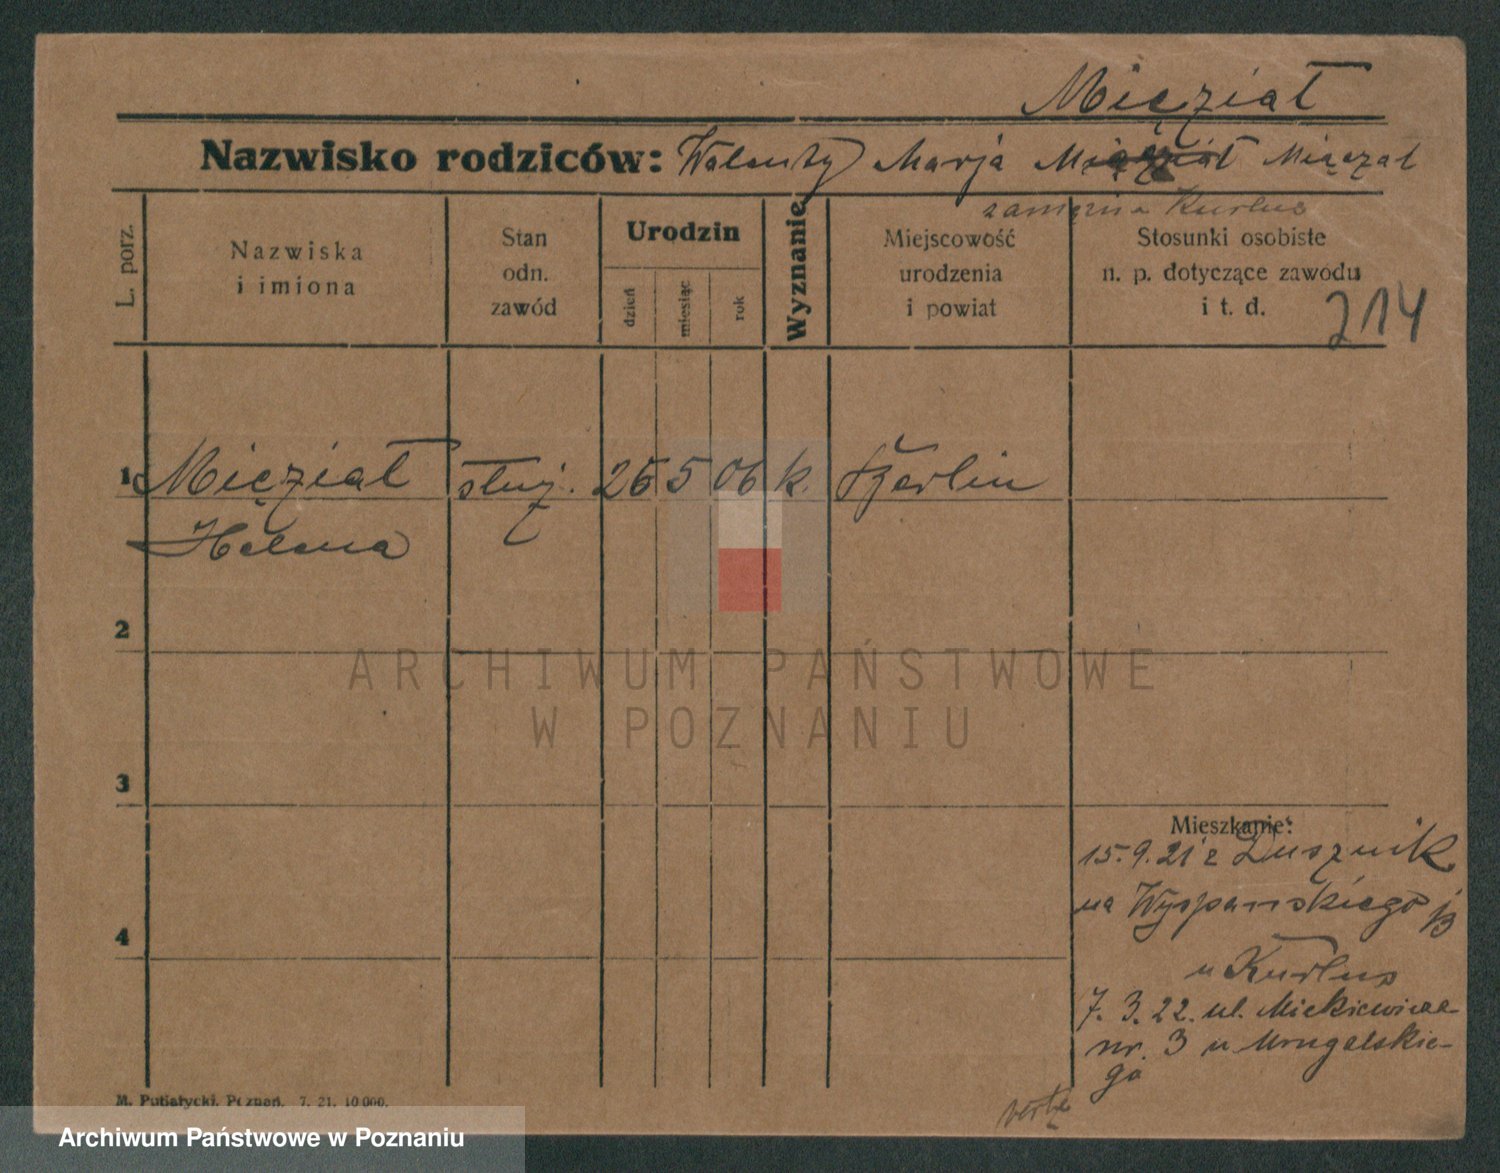 Mięział
Nazwisko rodziców: Walenty Marja Mięział Mięczał
zamężna Kurlus
L. porz.
Nazwiska
i imiona
Stan
odn.
zawód
Urodzin
dzień
miesiąc
rok
Wyznanie
Miejscowość
urodzenia
i powiat
Stosunki osobiste
n. p. dotyczące zawodu
i t. d.
214
1 Mięział służ. 25 5 06 k. Berlin
Helena
2
3
4
Mieszkanie:
15.9.21 z Dusznik
na Wyspańskiego
u Kurlus
7. 3. 22. ul. Mickiewicza
nr. 3 u Mrugalskie-
go
verte
M. Putiatycki. Poznań. 7. 21. 10 000.
ARCHIWUM PAŃSTWOWE
W POZNANIU
Archiwum Państwowe w Poznaniu